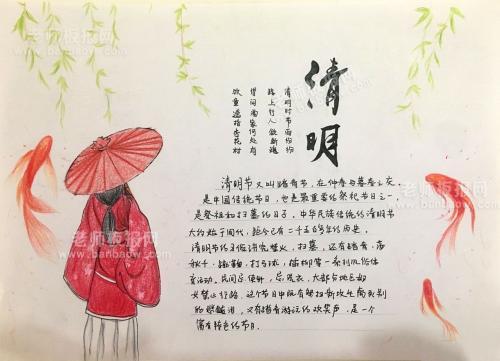 清明
清明时节雨纷纷
路上行人欲断魂
借问酒家何处有
牧童遥指杏花村
清明节又叫踏青节，在仲春与暮春之交
是中国传统节日，也是最重要的祭祀节日之一
是祭祖和扫墓的日子，中华民族传统的清明节
大约始于周代，距今已有二千五百多年的历史，
清明节的习俗讲究禁火、扫墓，还有踏青、荡
秋千、蹴鞠、打马球、插柳等一系列风俗体
育活动。民间忌使针，忌洗衣，大部分地区妇
女禁止行路，这个节日中既有祭扫新坟生离死别
的悲酸泪，又有踏青游玩的欢笑声，是一个
富有特色的节日。
老师板报网